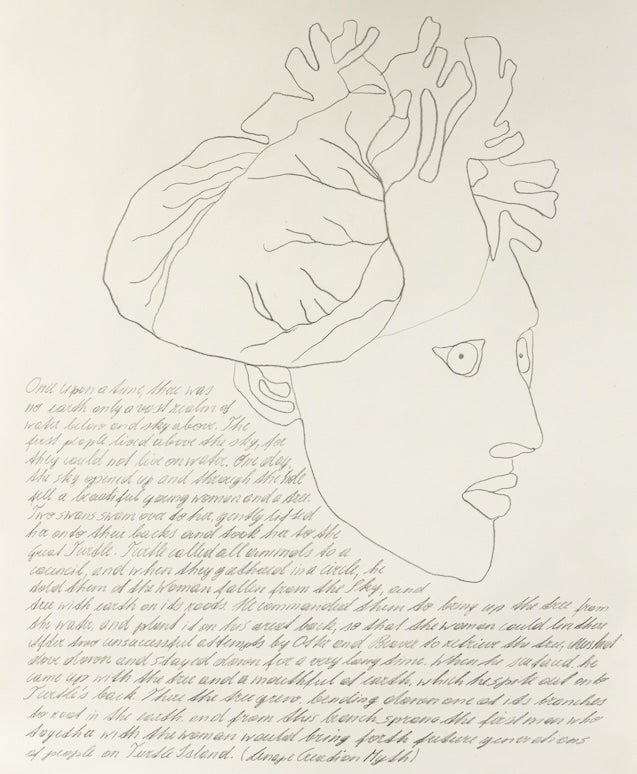 Once upon a time, there was
no earth only a vast realm of
water below and sky above. The
first people lived above the sky, for
they could not live on water. One day,
the sky opened up and through the hole
fell a beautiful young woman and a tree.
Two swans swam over to her, gently lifted
her onto their backs and took her to the
Great Turtle. Turtle called all animals to a
council, and when they gathered in a circle, he
told them of the Woman fallen from the Sky, and
tree with earth on its roots. He commanded them to bring up the tree from
the water, and plant it on his great back, so that the woman could live there
After two unsuccessful attempts by Otter and Beaver to retrieve the tree, Muskrat
dove down and stayed down for a very long time. When he surfaced, he
came up with the tree and a mouthful of earth, which he spite out on to
Turtle's back. There the tree grew, bending down one of its branches
to root in the earth, and from this branch sprang the first man who
together with the woman would bring forth future generations
of people on Turtle Island. (Lenape Creation Myth)